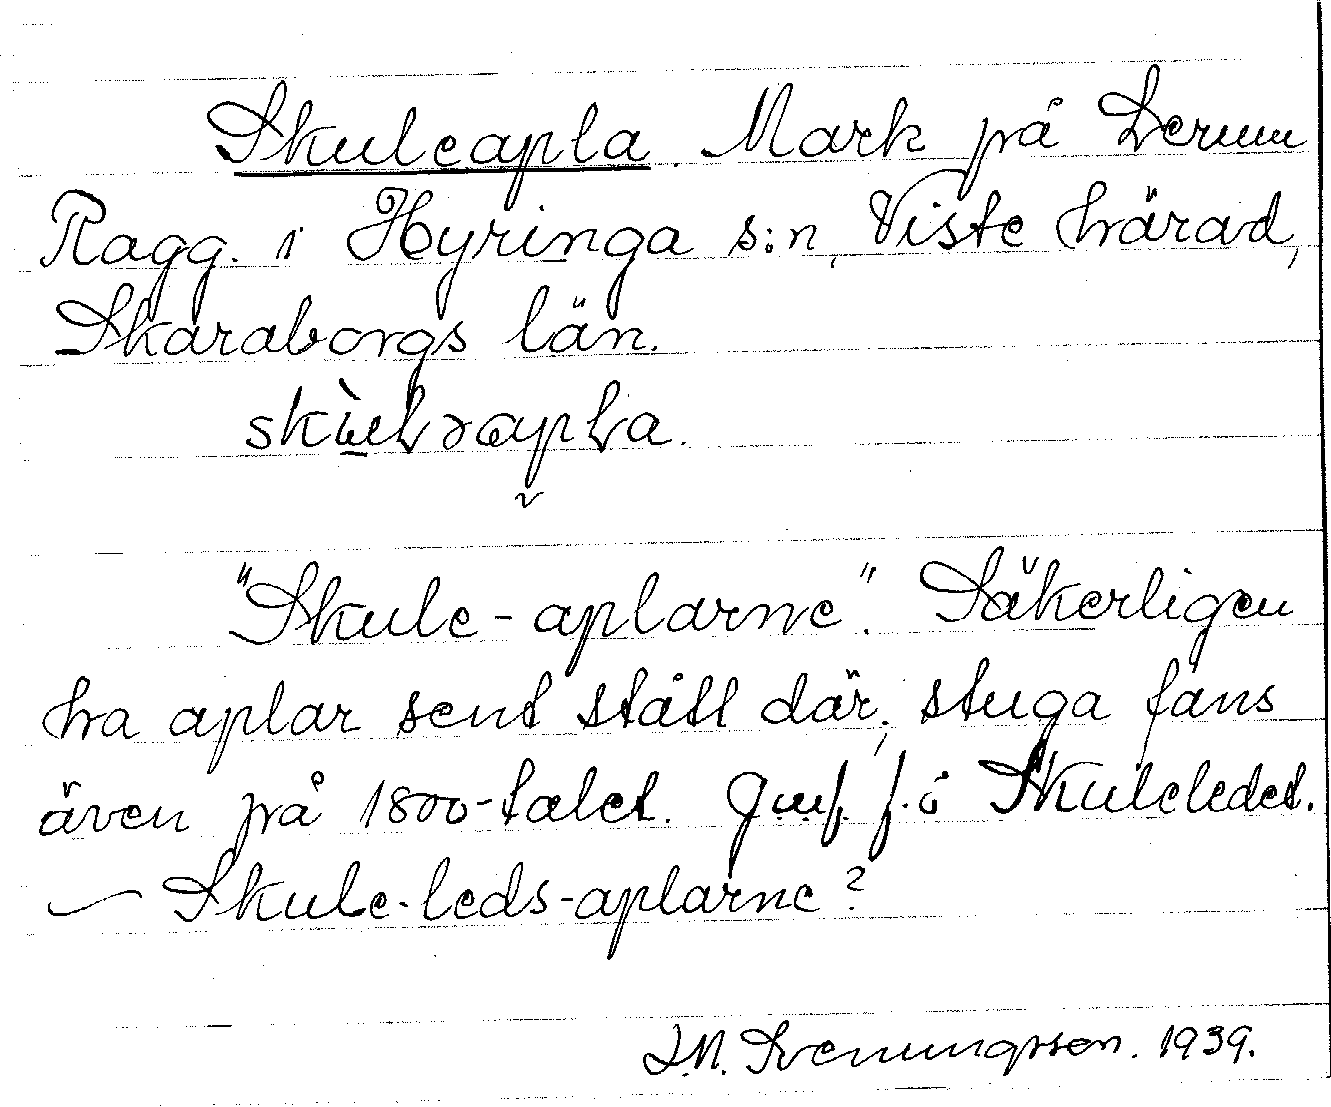 Skuleapla. Mark på Derum
Ragg. i Hyringa s:n, Viste härad,
Skaraborgs län.
"Skule-aplarne". Säkerligen
ha aplar sent stått där; stuga fans
även på 1800-talet. Jmf. f. ö Skuleledet.
— Skule-leds-aplarne?
J.N. Svenungsson. 1939.